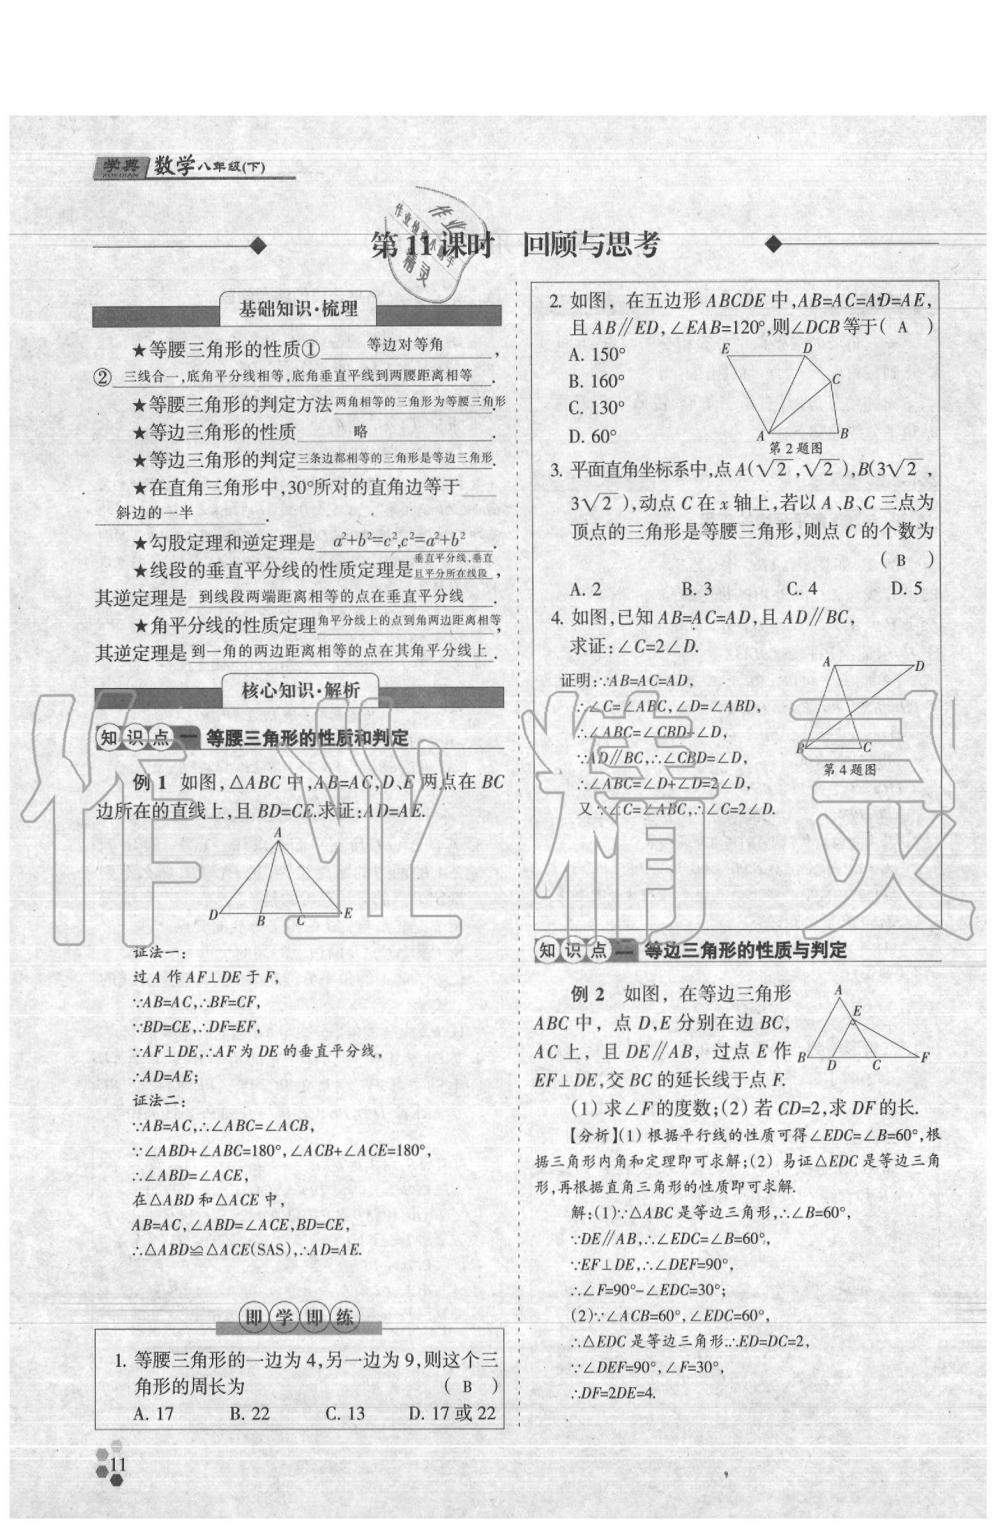 学典 数学八年级(下)
XUE DIAN
第11课时 回顾与思考
基础知识·梳理
★等腰三角形的性质① 等边对等角 ,
② 三线合一,底角平分线相等,底角垂直平线到两腰距离相等 .
★等腰三角形的判定方法 两角相等的三角形为等腰三角形 .
★等边三角形的性质 略 .
★等边三角形的判定 三条边都相等的三角形是等边三角形 .
★在直角三角形中,30°所对的直角边等于
斜边的一半 .
★勾股定理和逆定理是 a²+b²=c²,c²=a²+b² .
★线段的垂直平分线的性质定理是 垂直平分线,垂直且平分所在线段 ,
其逆定理是 到线段两端距离相等的点在垂直平分线 .
★角平分线的性质定理 角平分线上的点到角两边距离相等 ,
其逆定理是 到一角的两边距离相等的点在其角平分线上 .
核心知识·解析
知识点一 等腰三角形的性质和判定
例1 如图,△ABC中,AB=AC,D、E两点在BC
边所在的直线上,且BD=CE.求证:AD=AE.
A
D B C E
证法一:
过A作AF⊥DE于F,
∵AB=AC,∴BF=CF,
∵BD=CE,∴DF=EF,
∵AF⊥DE,∴AF为DE的垂直平分线,
∴AD=AE;
证法二:
∵AB=AC,∴∠ABC=∠ACB,
∵∠ABD+∠ABC=180°,∠ACB+∠ACE=180°,
∴∠ABD=∠ACE,
在△ABD和△ACE中,
AB=AC,∠ABD=∠ACE,BD=CE,
∴△ABD≌△ACE(SAS),∴AD=AE.
即学即练
1. 等腰三角形的一边为4,另一边为9,则这个三
角形的周长为 ( B )
A. 17 B. 22 C. 13 D. 17或22
11
2. 如图，在五边形ABCDE中,AB=AC=AD=AE,
且AB∥ED,∠EAB=120°,则∠DCB等于( A )
A. 150°
B. 160°
C. 130°
D. 60°
E D
C
A B
第2题图
3. 平面直角坐标系中,点A(√2,√2),B(3√2,
3√2),动点C在x轴上,若以A、B、C三点为
顶点的三角形是等腰三角形,则点C的个数为
( B )
A. 2 B. 3 C. 4 D. 5
4. 如图,已知AB=AC=AD,且AD∥BC,
求证:∠C=2∠D.
证明:∵AB=AC=AD,
∴∠C=∠ABC,∠D=∠ABD,
∴∠ABC=∠CBD+∠D,
∵AD∥BC,∴∠CBD=∠D,
∴∠ABC=∠D+∠D=2∠D,
又∵∠C=∠ABC,∴∠C=2∠D.
A D
B C
第4题图
知识点二 等边三角形的性质与判定
例2 如图，在等边三角形
ABC中，点D,E分别在边BC,
AC上，且DE∥AB，过点E作
EF⊥DE,交BC的延长线于点F.
A
E
B D C F
(1)求∠F的度数;(2)若CD=2,求DF的长.
【分析】(1)根据平行线的性质可得∠EDC=∠B=60°,根
据三角形内角和定理即可求解;(2)易证△EDC是等边三角
形,再根据直角三角形的性质即可求解.
解:(1)∵△ABC是等边三角形,∴∠B=60°,
∵DE∥AB,∴∠EDC=∠B=60°,
∵EF⊥DE,∴∠DEF=90°,
∴∠F=90°-∠EDC=30°;
(2)∵∠ACB=60°,∠EDC=60°,
∴△EDC是等边三角形.∴ED=DC=2,
∵∠DEF=90°,∠F=30°,
∴DF=2DE=4.
作业精灵